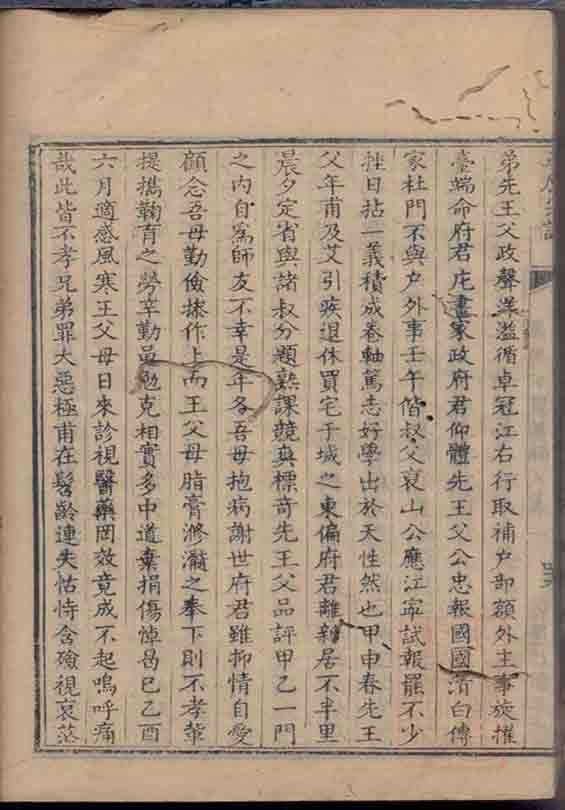 弟先王父政聲洋溢循卓冠江右行取補户部額外主事旋擢
臺端命府君庀畫家政府君仰體先王父公忠報國國清白傳
家杜門不與户外事壬午偕叔父袞山公應江寜試報罷不少
挫日拈一義積成卷軸篤志好學出於天性然也甲申春先王
父年甫及艾引疾退休買宅于城之東偏府君離新居不半里
晨夕定省與諸叔分題熟課競爽標奇先王父品評甲乙一門
之内自為師友不幸是年冬吾母抱病謝世府君雖抑情自愛
顧念吾母勤儉操作上而王父母脂膏滫瀡之奉下則不孝輩
提攜鞠育之勞辛勤黽勉克相實多中道棄捐傷悼曷已乙酉
六月適感風寒王父母日來診視醫藥罔效竟成不起嗚呼痛
哉此皆不孝兄弟罪大惡極甫在髫齡連失怙恃含殮視哀茫